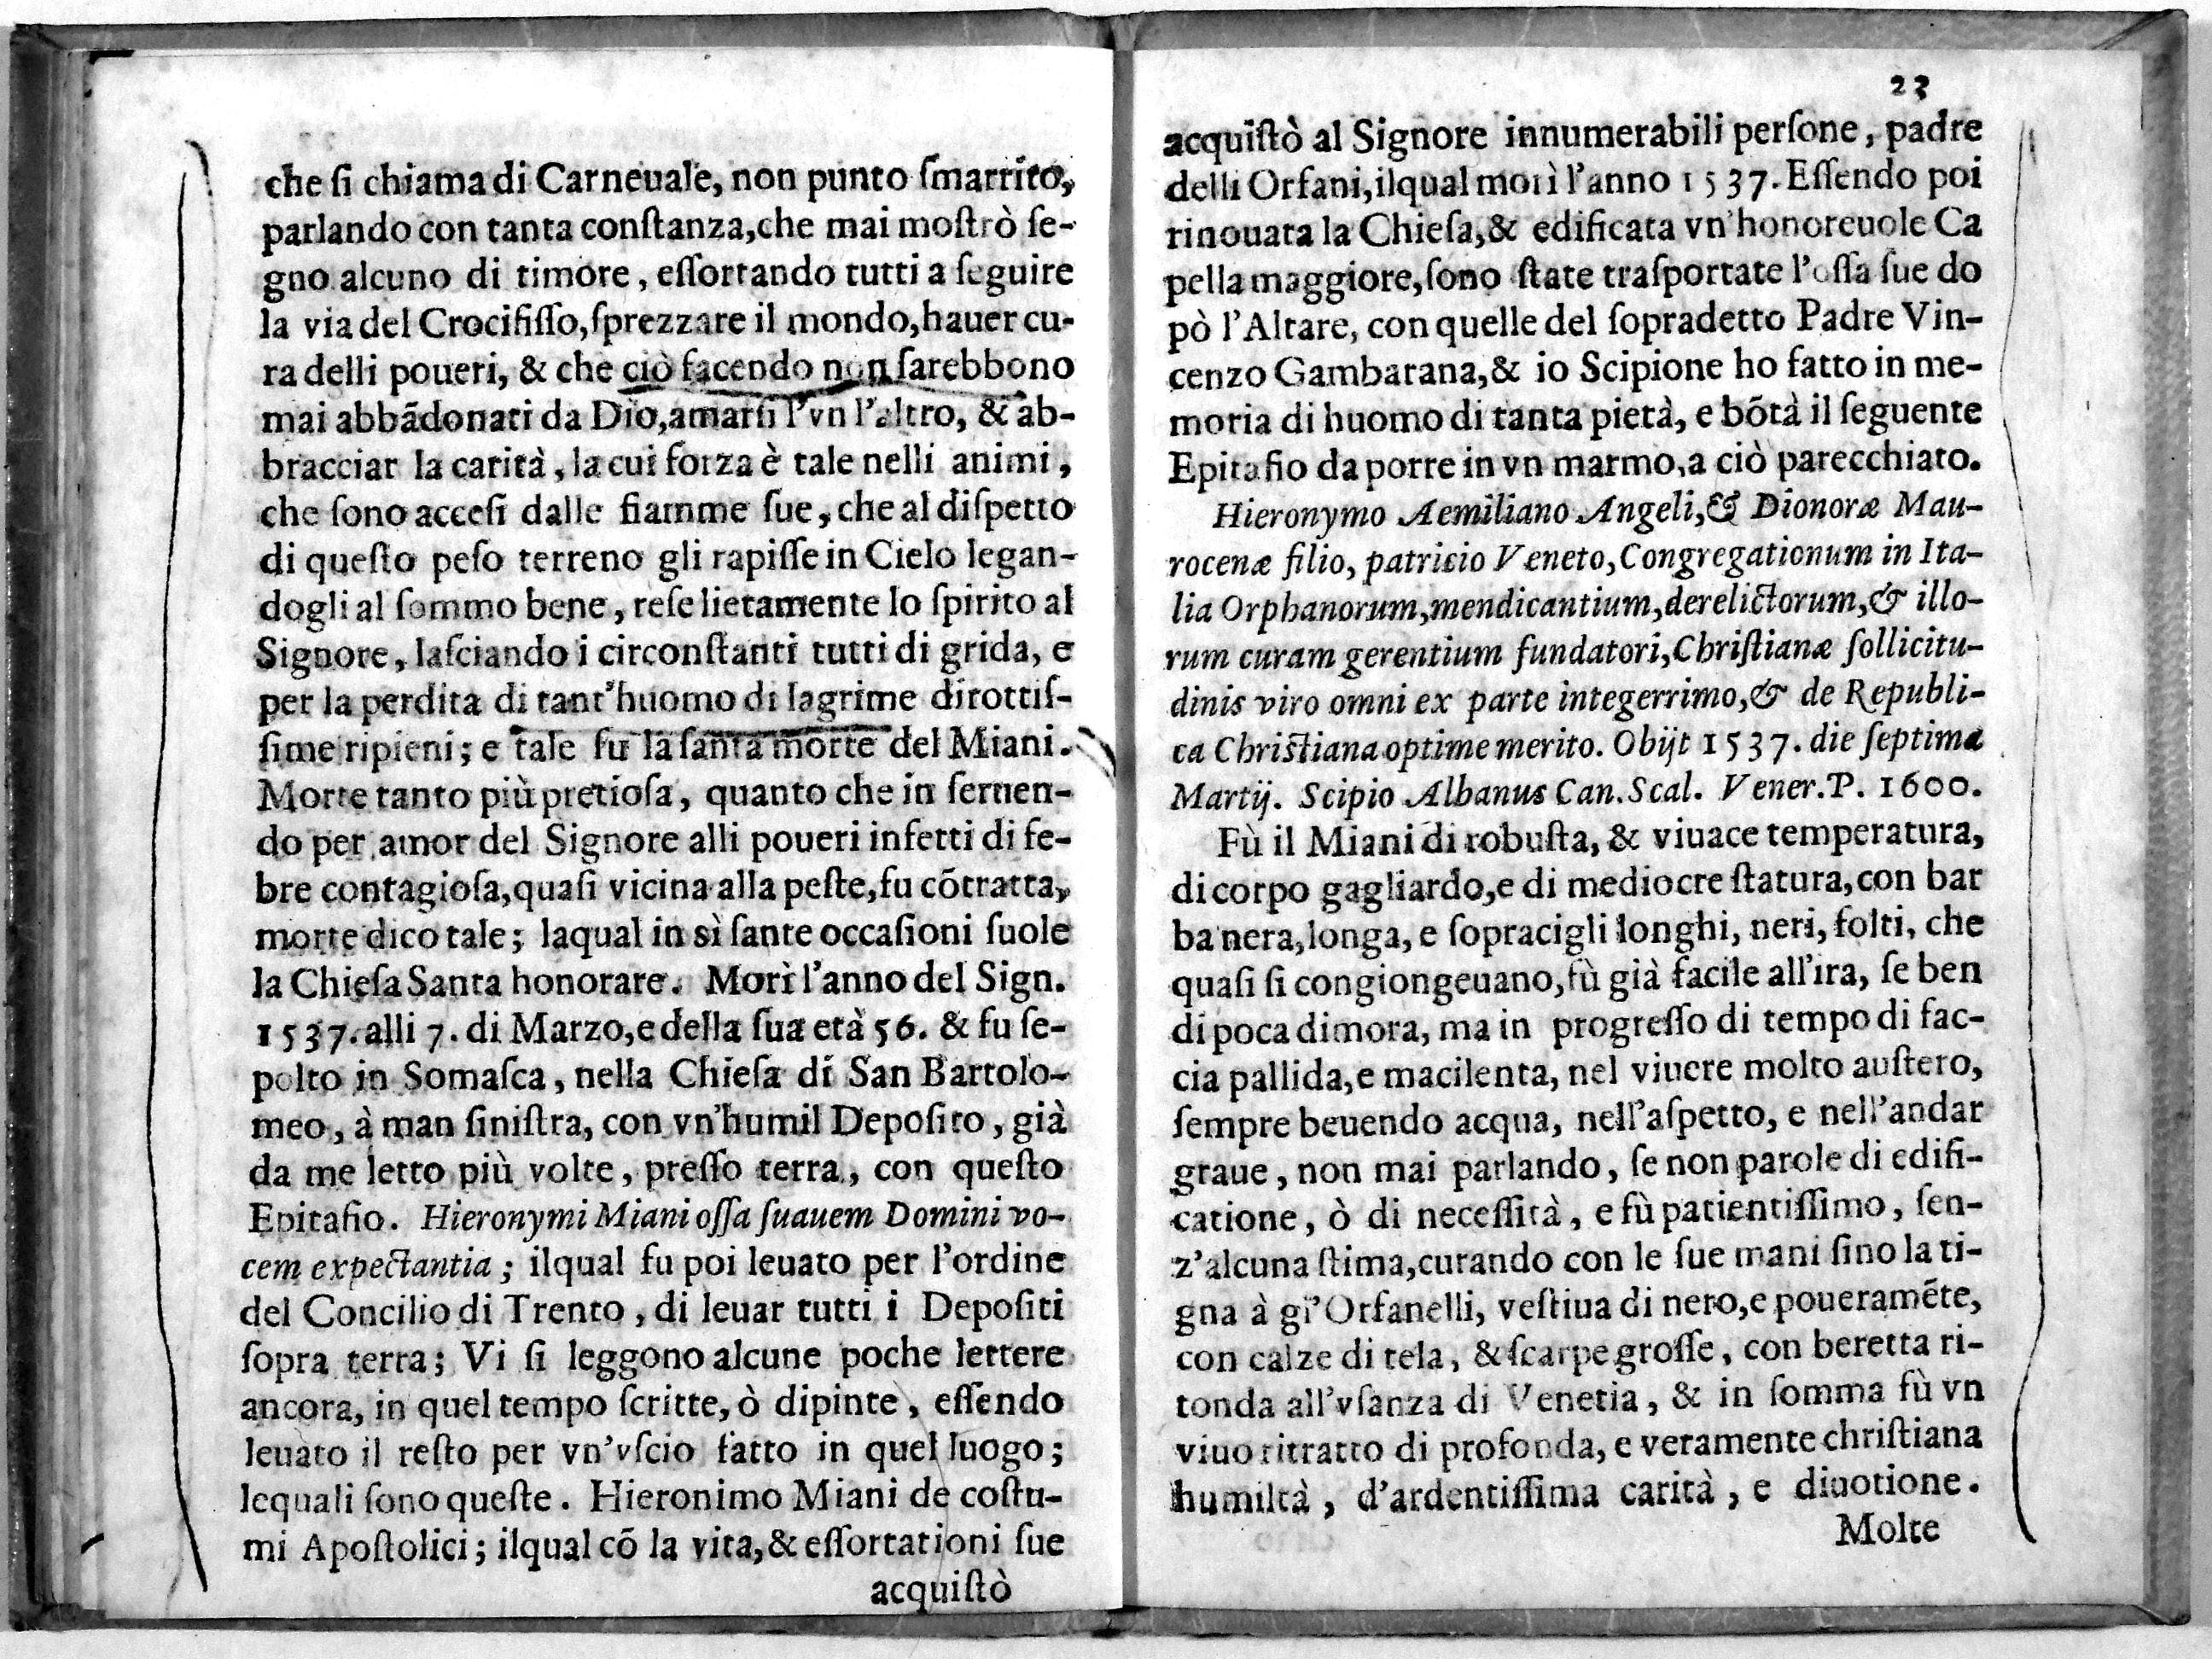 che ſi chiama di Carneuale, non punto ſmarrito,
parlando con tanta conſtanza,che mai moſtrò ſe-
gno alcuno di timore, eſſortando tutti a ſeguire
la via del Crocifiſſo,ſprezzare il mondo,hauer cu-
ra delli poueri, & che ciò facendo non ſarebbono
mai abbãdonati da Dio,amarſi l'vn l'altro, & ab-
bracciar la carità, la cui forza è tale nelli animi,
che ſono acceſi dalle fiamme ſue, che al diſpetto
di queſto peſo terreno gli rapiſſe in Cielo legan-
dogli al ſommo bene, reſe lietamente lo ſpirito al
Signore, laſciando i circonſtanti tutti di grida, e
per la perdita di tant'huomo di lagrime dirottiſ-
ſime ripieni; e tale fu la ſanta morte del Miani.
Morte tanto più pretioſa, quanto che in ſeruen-
do per amor del Signore alli poueri infetti di fe-
bre contagioſa,quaſi vicina alla peſte,fu cõtratta,
morte dico tale; laqual in sì ſante occaſioni ſuole
la Chieſa Santa honorare. Morì l'anno del Sign.
1537.alli 7. di Marzo,e della ſua età 56. & fu ſe-
polto in Somaſca, nella Chieſa di San Bartolo-
meo, à man ſiniſtra, con vn'humil Depoſito, già
da me letto più volte, preſſo terra, con queſto
Epitafio. Hieronymi Miani oſſa ſuauem Domini vo-
cem expectantia; ilqual fu poi leuato per l'ordine
del Concilio di Trento, di leuar tutti i Depoſiti
ſopra terra; Vi ſi leggono alcune poche lettere
ancora, in quel tempo ſcritte, ò dipinte, eſſendo
leuato il reſto per vn'vſcio fatto in quel luogo;
lequali ſono queſte. Hieronimo Miani de coſtu-
mi Apoſtolici; ilqual cõ la vita,& eſſortationi ſue
acquiſtò
23
acquiſtò al Signore innumerabili perſone, padre
delli Orfani,ilqual morì l'anno 1537. Eſſendo poi
rinouata la Chieſa,& edificata vn'honoreuole Ca
pella maggiore,ſono ſtate traſportate l'oſſa ſue do
pò l'Altare, con quelle del ſopradetto Padre Vin-
cenzo Gambarana,& io Scipione ho fatto in me-
moria di huomo di tanta pietà, e bõtà il ſeguente
Epitafio da porre in vn marmo,a ciò parecchiato.
Hieronymo Aemiliano Angeli,& Dionoræ Mau-
rocenæ filio, patricio Veneto,Congregationum in Ita-
lia Orphanorum,mendicantium,derelictorum,& illo-
rum curam gerentium fundatori,Chriſtianæ ſollicitu-
dinis viro omni ex parte integerrimo,& de Republi-
ca Chriſtiana optime merito. Obijt 1537. die ſeptima
Martij. Scipio Albanus Can.Scal. Vener.P. 1600.
Fù il Miani di robuſta, & viuace temperatura,
di corpo gagliardo,e di mediocre ſtatura,con bar
ba nera,longa, e ſopracigli longhi, neri, folti, che
quaſi ſi congiongeuano,fù già facile all'ira, ſe ben
di poca dimora, ma in progreſſo di tempo di fac-
cia pallida,e macilenta, nel viuere molto auſtero,
ſempre beuendo acqua, nell'aſpetto, e nell'andar
graue, non mai parlando, ſe non parole di edifi-
catione, ò di neceſſità, e fù patientiſſimo, ſen-
z'alcuna ſtima,curando con le ſue mani ſino la ti-
gna à gl'Orfanelli, veſtiua di nero,e poueramẽte,
con calze di tela, & ſcarpe groſſe, con beretta ri-
tonda all'vſanza di Venetia, & in ſomma fù vn
viuo ritratto di profonda, e veramente chriſtiana
humiltà, d'ardentiſſima carità, e diuotione.
Molte